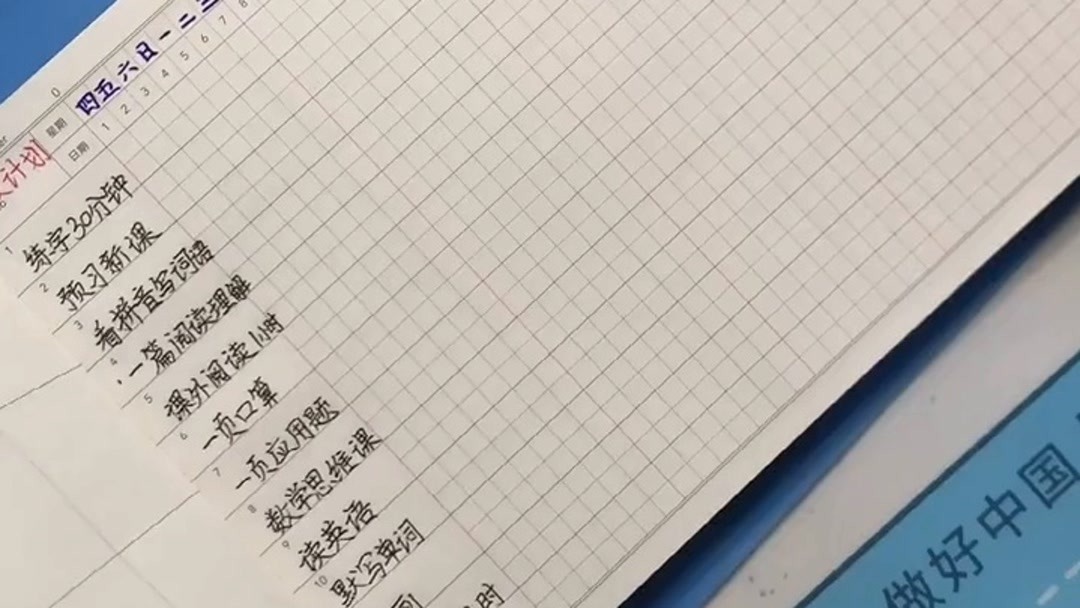 0
星期 四 五 六 日 一 二 三
日期 1 2 3 4 5 6 7 8
计划】
1 练字30分钟
2 预习新课
3 看拼音写词语
4 一篇阅读理解
5 课外阅读1小时
6 一页口算
7 一页应用题
8 数学思维课
9 读英语
10 默写单词
时
做好中国